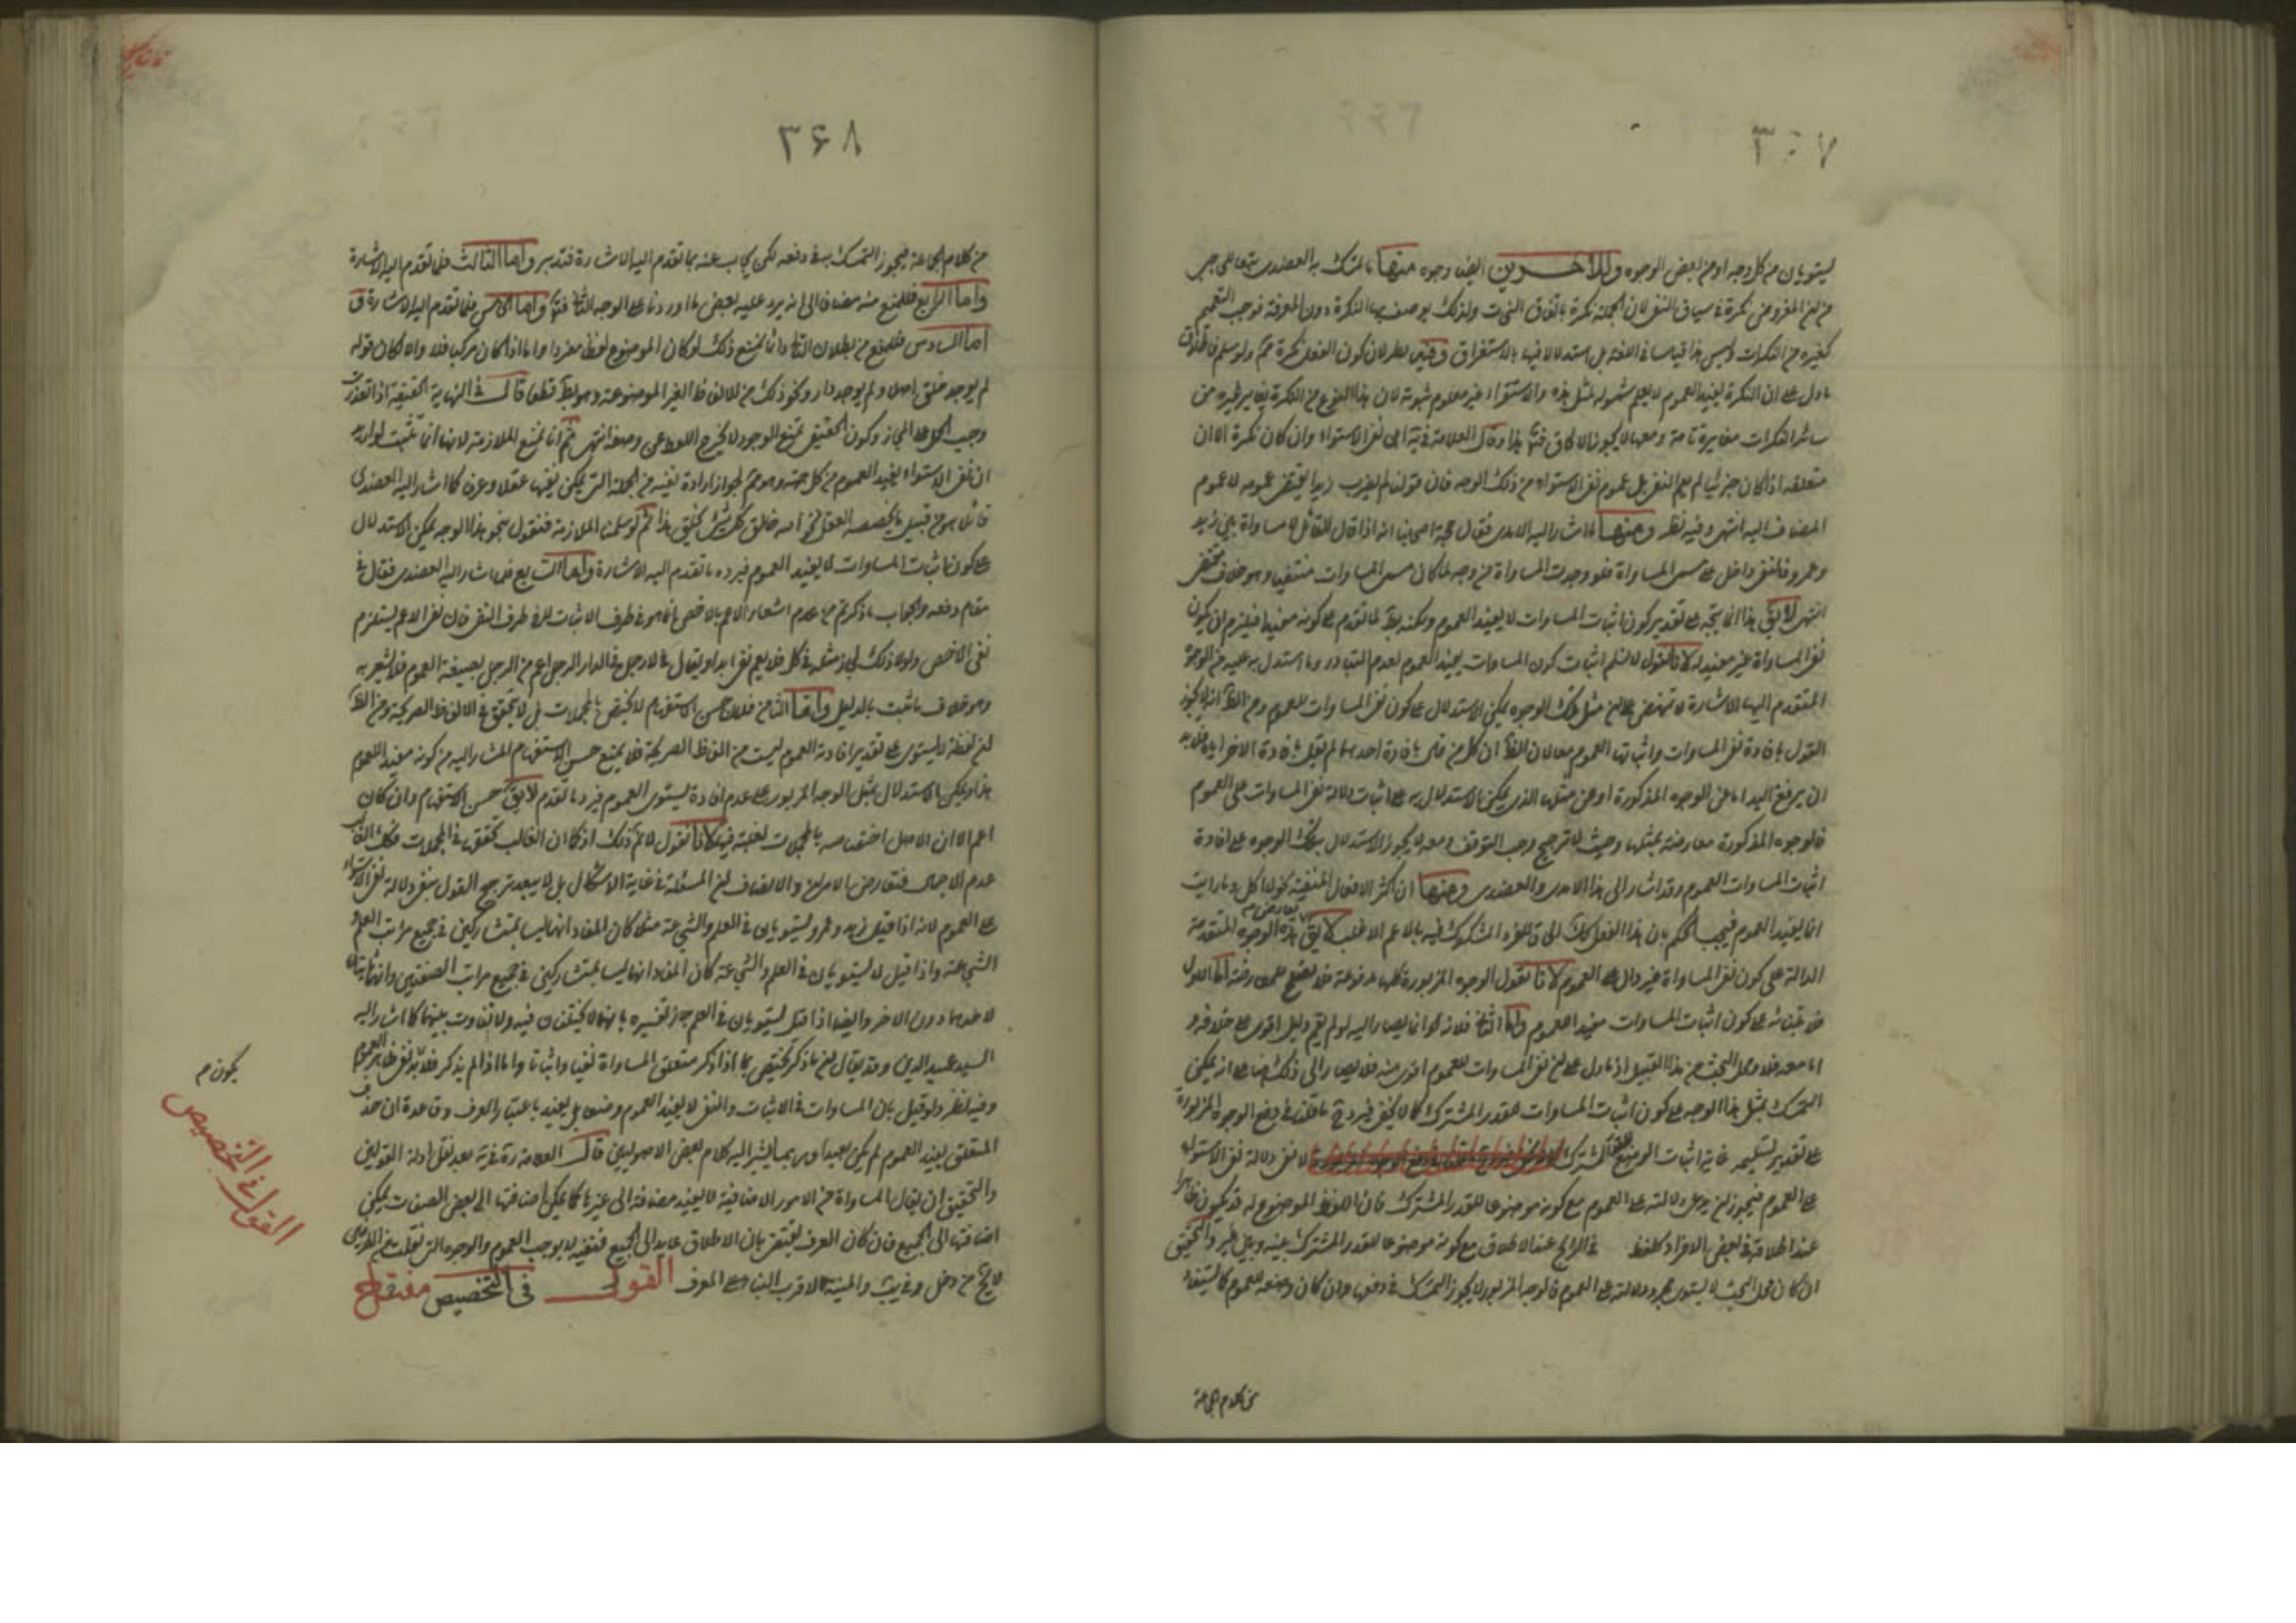 ٣٦٧
يستويان من كل وجه او من بعض الوجوه وللآخرين ايضا وجوه منها ما تمسك به العضدى
من نكرة فى سياق النفى لان الجملة نكرة باتفاق النحاة ولذلك يوصف بها النكرة دون المعرفة فوجب التعميم
كغيره من النكرات وليس هذا قياسا فى اللغة بل استدلالا فيها بالاستقراء وفيه نظر لان كون الفعل نكرة ثم ولو سلم
ما دل على ان النكرة يفيد العموم لا يعلم شموله لمثل هذه والاستقراء غير معلوم ثبوته لان هذا النوع من النكرة
سائر النكرات مغايرة تامة ومعها لا يجوز الالحاق هذا وقال العلامة فى اعنى نفى الاستواء وان كان نكرة الا ان
متعلقه اذا كان جزئيا لم يعم النفى بل عموم نفى الاستواء من ذلك الوجه فان قولنا لم يضرب زيدا يقتضى عمومه لا عموم
المضاف اليه انتهى وفيه نظر ومنها ما اشار اليه الآمدى فقال حجة اصحابنا انه اذا قال القائل لا مساواة بين زيد
وعمرو فالنفى داخل على مسمى المساواة فلو وجدت المساواة من وجه لما كان مسمى المساوات منتفيا وهو خلاف مقتضى
انتهى لا يق هذا انما يتجه على تقدير كون اثبات المساوات لا يفيد العموم ولكنه بط لما تقدم على كونه مفيدا فيلزم ان يكون
نفى المساواة غير مفيد له لانا نقول لا نسلم اثبات كون المساوات يفيد العموم لعدم التبادر وما استدل به عليه من الوجوه
المتقدم اليها الاشارة لا تنهض مثل تلك الوجوه يمكن الاستدلال على كون نفى المساوات للعموم ومن الظ انه لا يجوز
القول بافادة نفى المساوات واثباتها العموم معا لان الظ ان كل من قال بافادة احدهما لم يقل بافادة الاخر اياه
ان يرفع اليد اما عن الوجوه المذكورة او عن مثلها الذى يمكن الاستدلال به على اثبات دلالة نفى المساوات على العموم
فالوجوه المذكورة معارضة بمثلها وحيث لا ترجيح وجب التوقف ومعه لا يجوز الاستدلال بتلك الوجوه على افادة
اثبات المساوات العموم وقد اشار الى هذا الآمدى والعضدى ومنها ان اكثر الافعال المنفية كقوله لا اكل وما رايت
انما يفيد العموم فيجب الحكم بان هذا الفعل كك الحاقا للفرد المشكوك فيه بالاعم الاغلب لا يق هذه الوجوه المتقدمة
الدالة على كون نفى المساواة غير دال على العموم لانا نقول الوجوه المزبورة كلها مدفوعة فلا تصلح للمعارضة اما الاول
فلابتنائه على كون اثبات المساوات مفيد العموم واما الثانى فلانه انما يصار اليه لو لم يقم دليل اقوى على خلافه و
اما معه فلا ومحل البحث من هذا القبيل اذ ما دل على ان نفى المساوات للعموم اقوى منه فلا يصار الى ذلك مضافا الى انه يمكن
التمسك بمثل هذا الوجه على كون اثبات المساوات للقدر المشترك كما لا يخفى فيرد ح ما قلنا فى دفع الوجوه المزبورة
على تقدير تسليمه غايته اثبات الوضع للقدر المشترك لا نفى دلالة نفى الاستواء
على العموم فيجوز ان يدعى دلالته على العموم مع كونه موضوعا للقدر المشترك فان اللفظ الموضوع له قد يكون ظاهرا
عند اطلاقه فى بعض الافراد كلفظ فى الرايج عند الاطلاق مع كونه موضوعا للقدر المشترك بينه وبين غيره والتحقيق
ان كان محل البحث لا يستوى مجرد دلالته على العموم فالوجه المزبور لا يجوز التمسك فى دفعها وان كان وضعه للعموم كما يستفاد
من كلام الجماعة
٣٦٨
من كلام الجماعة فيجوز التمسك به فى دفعه لكن يجاب عنه بما تقدم اليه الاشارة فتدبر واما الثالث فلما تقدم اليه الاشارة
واما الرابع فللمنع منه مضافا الى انه يرد عليه بعض ما اوردنا على الوجه الثانى واما الخامس فلما تقدم اليه الاشارة و
اما السادس فللمنع من بطلان التالى وانما يمتنع ذلك لو كان الموضوع لفظ مفردا واما اذا كان مركبا فلا والا لكان قوله
لم يوجد خلق اصلا ولم يوجد دار ونحو ذلك من الالفاظ الغير الموضوعة وهو بط قطعا قال فى النهاية الحقيقة اذا تعذرت
وجب الحمل على المجاز وكون الحقيقى ممتنع الوجود لا يخرج اللفظ عن وضعه انتهى ثم انا نمنع الملازمة لانها انما تثبت لو اريد
ان نفى الاستواء يفيد العموم من كل جهة وهو ثم لجواز ارادة نفيه من الجملة التى يمكن نفيها عقلا وعرفا كما اشار اليه العضدى
قائلا هو من قبيل ما يخصصه العقل نحو الله خالق كل شئ كخلق هذا ثم لو سلمنا الملازمة فنقول بنحو هذا الوجه يمكن الاستدلال
على كون اثبات المساوات لا يفيد العموم فيرده ما تقدم اليه الاشارة واما السابع فلما اشار اليه العضدى فقال فى
مقام دفعه والجواب ما ذكرتم من عدم اشعار الاعم بالاخص انما هو فى طرف الاثبات لا فى طرف النفى فان نفى الاعم يستلزم
نفى الاخص ولولا ذلك لجاز مثله فى كل فلا يعم نفى ابدا ويقال فى لا رجل فى الدار الرجل اعم من الرجل بصيغة العموم فلا يشعر به
وهو خلاف ما ثبت بالدليل واما الثامن فلان حسن الاستفهام لا يختص بالمجملات بل لا يتحقق فى الالفاظ الصريحة ومن الظ
ان لفظة لا يستوى على تقدير افادته العموم ليست من الفاظ الصريحة فلا يمنع حسن الاستفهام المشار اليه من كونه مفيد العموم
هذا ويمكن الاستدلال بمثل الوجه المزبور على عدم افادة يستوى العموم فيرد ما تقدم لا يق حسن الاستفهام وان كان
اعم الا ان الاصل اختصاصه بالمجملات لغلبته فيها لانا نقول لا نم ذلك اذ كما ان الغالب تحققه فى المجملات فكك الغالب
عدم الاجمال فتعارض الامران والانصاف ان المسئلة فى غاية الاشكال بل لا يبعد ترجيح القول بنفى دلالة نفى الاستواء
على العموم لانه اذا قيل زيد وعمرو لا يستويان فى العلم والشجاعة مثلا كان المفاد انهما ليسا بمتشاركين فى جميع مراتب العلم
الشجاعة واذا قيل لا يستويان فى العلم والشجاعة كان المفاد انهما ليسا بمتشاركين فى جميع مراتب الصفتين
لاحدهما دون الاخر وايضا اذا قيل يستويان فى العلم جاز تفسيره بانهما لا يختلفان فيه ولا تفاوت بينهما كما اشار اليه
السيد عميد الدين وقد يقال ان ما ذكر يختص بما اذا ذكر متعلق المساواة نفيا واثباتا واما اذا لم يذكر فلا بل نفى ظاهر العموم
وفيه نظر ولو قيل بان المساوات فى الاثبات والنفى لا يفيد العموم وضعا بل يفيد باعتبار العرف وقاعدة ان حذف
المتعلق يفيد العموم لم يكن بعيدا وربما يشير اليه كلام بعض الاصوليين قال العلامة ره فى يه بعد نقل ادلة القولين
والتحقيق ان يقال المساواة من الامور الاضافية لا يفيد مضافة الى غيرها كما يمكن اضافتها الى بعض الصفات يمكن
اضافتها الى الجميع فان كان العرف يقتضى بان الاطلاق عايد الى الجميع فنفيه لا يوجب العموم والوجوه التى نقلت من الطرفين
لا يخ من دخل وفى يب والمنية الاقرب البناء على العرف القول فى التخصيص مفتاح
يكون م
القول فى التخصيص